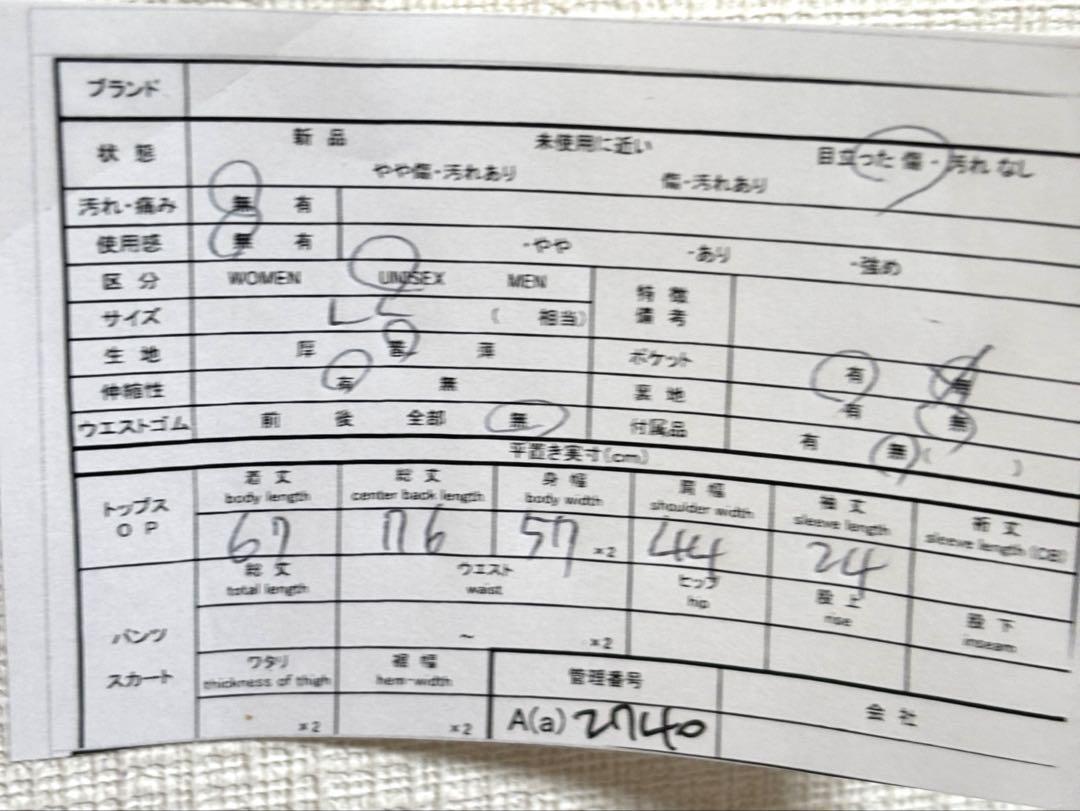 ブランド
状態 新品 未使用に近い 目立った傷・汚れなし
やや傷・汚れあり 傷・汚れあり
汚れ・痛み 無 有
使用感 無 有 -やや -あり -強め
区分 WOMEN UNISEX MEN 特徴
サイズ L ( 相当) 備考
生地 厚 普 薄 ポケット 有 無
伸縮性 有 無 裏地 有 無
ウエストゴム 前 後 全部 無 付属品 有 無 ( )
平置き実寸(cm)
トップス 着丈 総丈 身幅 肩幅 袖丈 裄丈
OP body length center back length body width shoulder width sleeve length sleeve length (CB)
67 76 57 ×2 44 24
総丈 ウエスト ヒップ 股上 股下
total length waist hip rise inseam
パンツ ~ ×2
スカート ワタリ 裾幅 管理番号 会社
thickness of thigh hem-width
×2 ×2 A(a) 2740